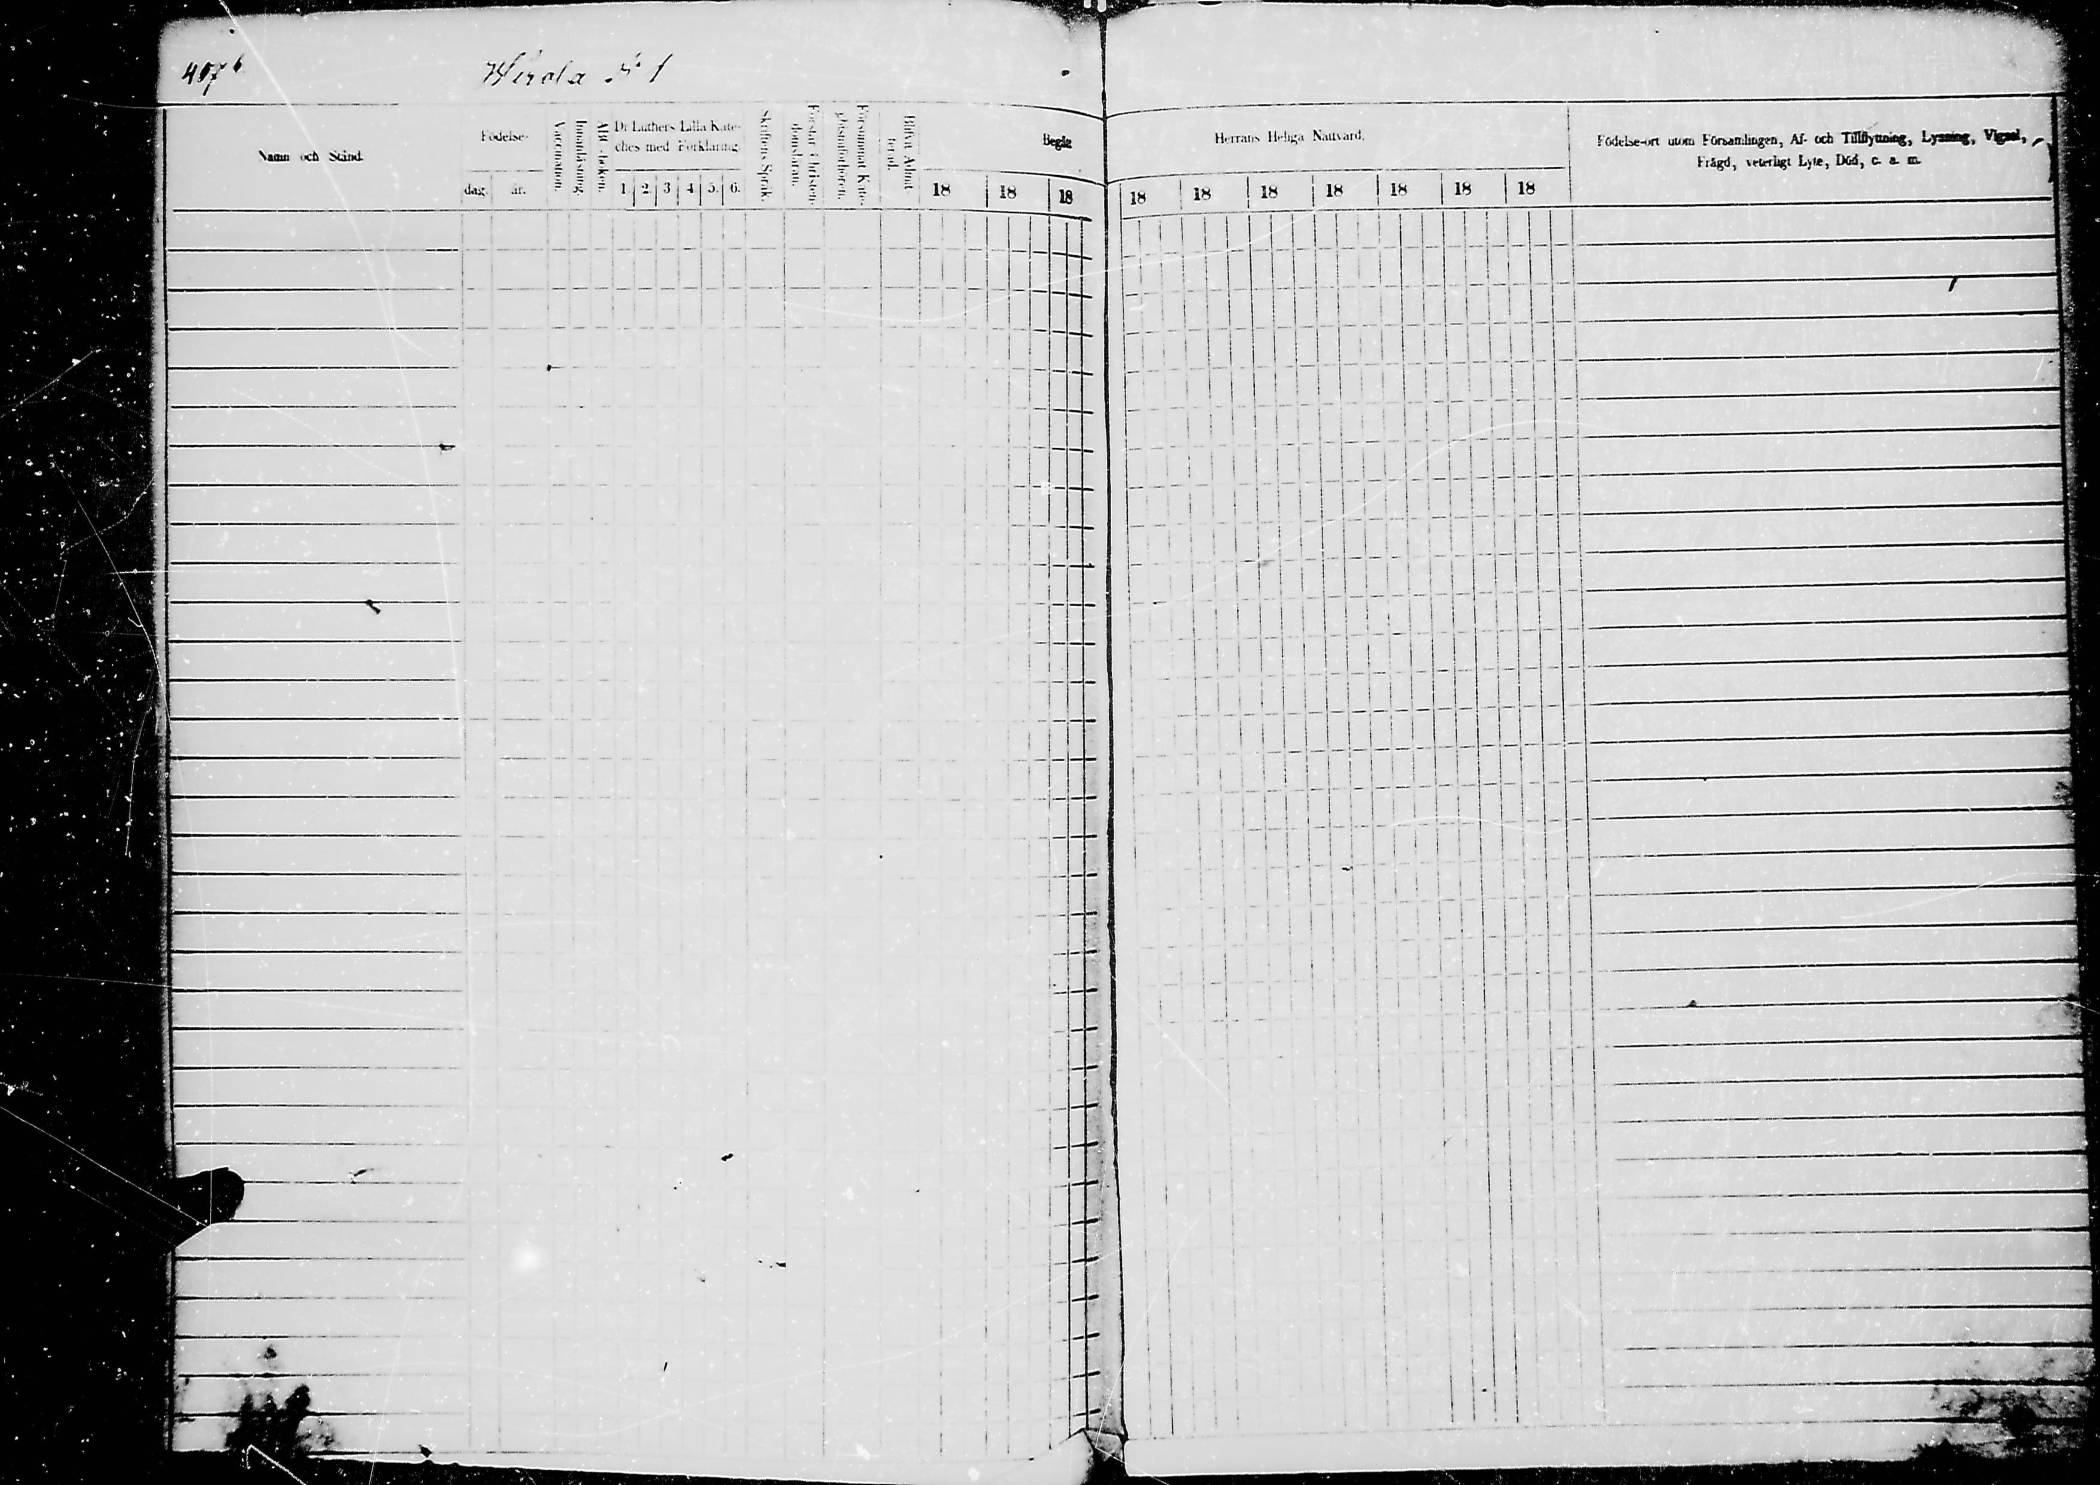 407 b
Wirola No 1
Namn och Stånd.
Födelse-
dag.
år.
Vaccination.
Innanläsning.
ABC-boken.
Dr Luthers Lilla Kate-
ches med Förklaring.
1. 2. 3 4 5. 6.
Skriftens Språk.
Förstår Christen-
domsläran.
Försummat Kate-
Blifvit Admit-
terad.
Begår
18 18 18
Herrans Heliga Nattvard.
18 18 18 18 18 18 18
Födelse-ort utom Församlingen, Af- och Tillflyttning, Lysning, Vigsel,
Frägd, veterligt Lyte, Död, c. a. m.